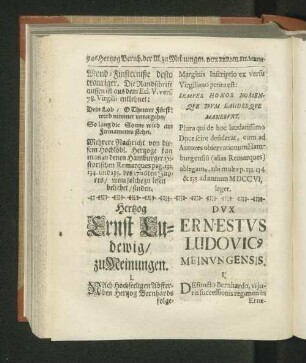 906 Hertzog Bernh. der III. zu Meinungen.
Mond-Finsternuße desto
trauriger. Die Randschrifft
ist aus dem Ecl. V. vers.
78. Virgilii entlehnet:
Dein Lob / O Theurer Fürst!
wird nimmer untergehen /
So lang die Sonne wird am
Firmamente stehn.
Mehrere Nachricht von
diesem Hochlöbl. Hertzoge kan
man in denen Hamburger Hi-
storischen Remarques pag. 131.
134. und 135. des 1706den Jah-
res / woselbst
Hertzog
Ernst Lu-
dewig /
zu Meinungen.
I.
Nach Hochseeligen Abster-
ben Hertzog Bernhards
folge-
Marginis Inscriptio ex versu
Virgiliano petita est:
SEMPER HONOS NOMEN-
QVE TVVM LAVDESQVE
MANEBVNT.
Plura qui de hoc laudatissimo
Duce scire desiderat, eum ad
Autores observationum Ham-
burgensium (alias Remarques)
ablegamus, ubi multa p. 131. 134.
& 135. ad annum MDCCVI,
leget.
DVX
ERNESTVS
LUDOVIC9
MEINVNGENSIS.
I.
Defuncto Bernhardo, vi ju-
ris successionis regimen in
Erne-